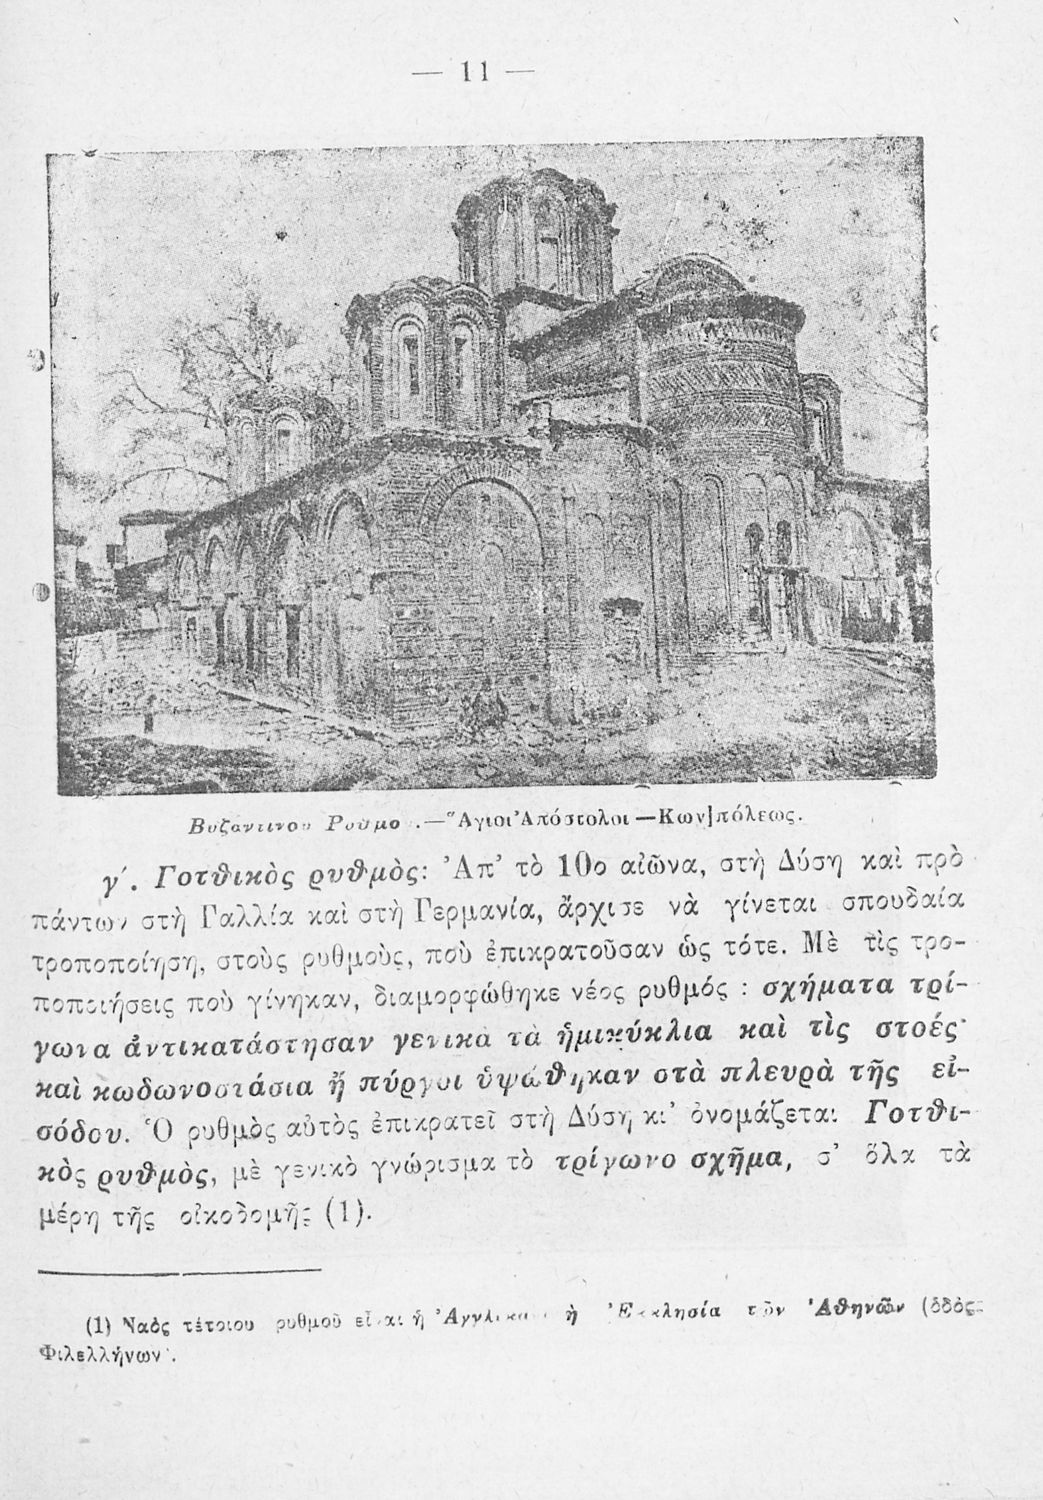 — 11 —
Βυζαντινου Ρυθμο.—Ἅγιοι Ἀπόστολοι—Κων]πόλεως.
γ΄. Γοτθικὸς ρυθμὸς: Ἀπ’ τὸ 10ο αἰῶνα, στὴ Δύση καὶ πρὸ
πάντων στὴ Γαλλία καὶ στὴ Γερμανία, ἄρχισε νὰ γίνεται σπουδαία
τροποποίηση, στοὺς ρυθμοὺς, ποὺ ἐπικρατοῦσαν ὡς τότε. Μὲ τὶς τρο-
ποποιήσεις ποὺ γίνηκαν, διαμορφώθηκε νέος ρυθμός : σχήματα τρί-
γωνα ἀντικατάστησαν γενικὰ τὰ ἡμικύκλια καὶ τὶς στοές
καὶ κωδωνοστάσια ἤ πύργοι ὑψώθηκαν στὰ πλευρὰ τῆς εἰ-
σόδου. Ὁ ρυθμὸς αὐτὸς ἐπικρατεῖ στὴ Δύση κι’ ὀνομάζεται Γοτθι-
κὸς ρυθμὸς, μὲ γενικὸ γνώρισμα τὸ τρίγωνο σχῆμα, σ’ ὅλα τὰ
μέρη τῆς οἰκοδομῆς (1).
(1) Ναὸς τέτοιου ρυθμοῦ εἶναι ἡ ἡ Ἐκκλησία τῶν Ἀθηνῶν (ὁδὸς
Φιλελλήνων).